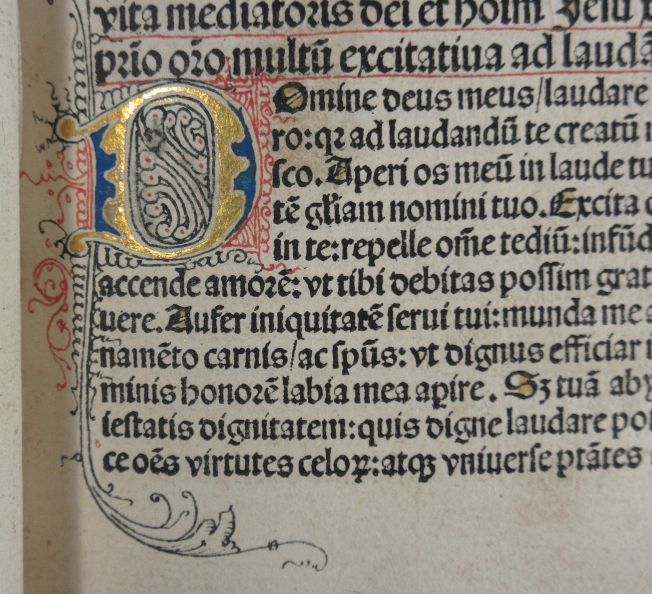 vita mediatoris dei et hoīm Jesu
prīo oŕo multū excitatiua ad laudā
Domine deus meus/laudare
ro:qꝛ ad laudandū te creatū
sco. Aperi os meū in laude tu
tē gl̄iam nomini tuo. Excita c
in te:repelle om̄e tediū:infūd
accende amorē: vt tibi debitas possim grat
uere. Aufer iniquitatē serui tui:munda me a
namēto carnis/ac sp̄us: vt dignus efficiar i
minis honorē labia mea apire. Sꝫ tuā aby
iestatis dignitatem:quis digne laudare pos
ce oēs virtutes celoꝝ:atqꝫ vniuerse ptātes